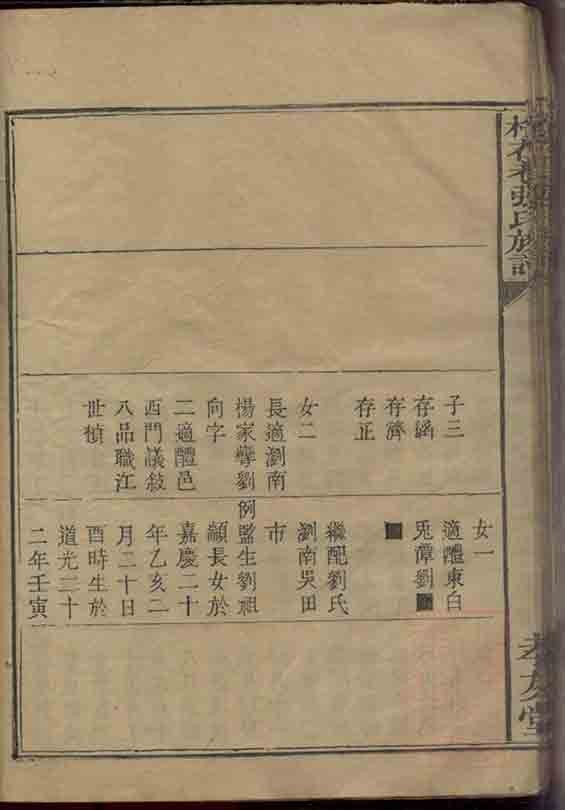 張氏族譜
孝友堂
子三
存
存濟
存正
女二
長適瀏南
楊家劉
向字
二適醴邑
西門議敘
八品職江
世楨
女一
適醴東白
兎潭劉■
■
繼配劉氏
瀏南吳田
市
例監生劉祖
長女於
嘉慶二十
年乙亥二
月二十日
酉時生於
道光二十
二年壬寅